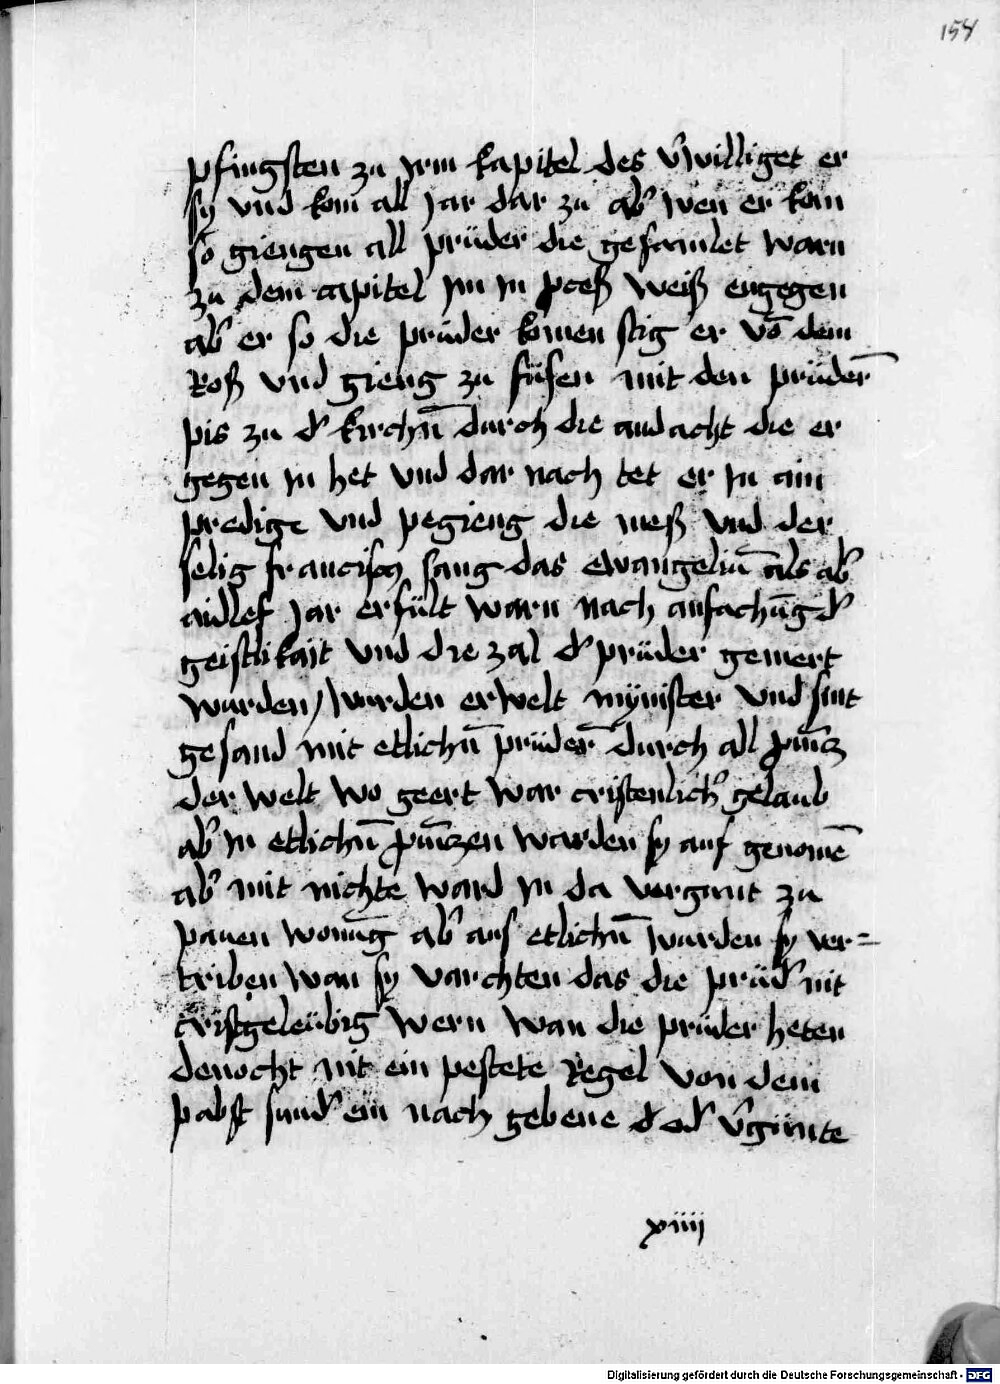 154
pfingsten zu jrm kapitel des v̉williget er
sy vnd kom all jar dar zu ab̉ wen er kom
so giengen all prüder die gesamlet warn
zu dem capitel jm jn pceß weiß engegen
ab̉ er so die prüder komen stig er vō dem
Roß vnd gieng zu füsen mit den prüder̄
pis zu d̉ kirchn̄ durch die andacht die er
gegen jn het vnd dar nach tet er jn ain
predige vnd pegieng die meß vnd der
selig francisch sang das ewangeliū als ab̉
aidlef jar erfült warn nach anfachūg d̉
geistlikajt vnd die zal d̉ prüder gemert
wurden / wurden erwelt mÿnister vnd sint
gesand mit etlichn̄ prüder̄ durch all puīcz
der welt wo geert war cristenlich̉ gelaub
ab̉ jn etlichn̄ puīczen warden sy auf genomē
ab̉ mit nichte ward jn da vergunt zu
pauen wonūg ab̉ aus etlichn̄ wurden sy ver=
triben wan sy varchten das die prüd̉ nit
cristgeleübig wern wan die prüder heten
denocht nit ein pestete Regel von dem
pabst sund̉ ein nach gebene d̉ od̉ v̉günte
xiiij
Digitalisierung gefördert durch die Deutsche Forschungsgemeinschaft - DFG